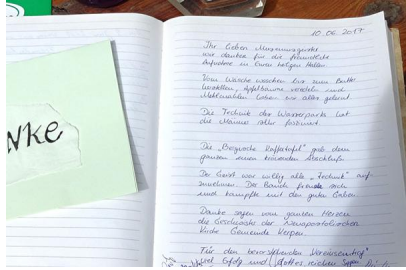 NKE
10.06.2017
Ihr lieben Museumswächter
wir danken für die freundliche
Aufnahme in Euren heiligen Hallen.
Vom Wäsche waschen bis zum Butter
herstellen, Apfelbäume veredeln und
haben wir alles gelernt.
Die Technik des Wasserparks hat
die Männer sehr fasziniert.
Die "Bergische Kaffeetafel" gab dem
ganzen einen krönenden Abschluß.
Der Geist war willig alle "Technik" auf
zunehmen. Der Bauch freute sich
und kämpfte mit den guten Gaben.
Danke sagen vom ganzen Herzen
die Geschwister der Neuapostolischen
Kirche Gemeinde Kerpen.
Für den bevorstehenden
viel Erfolg und Gottes reichen Segen